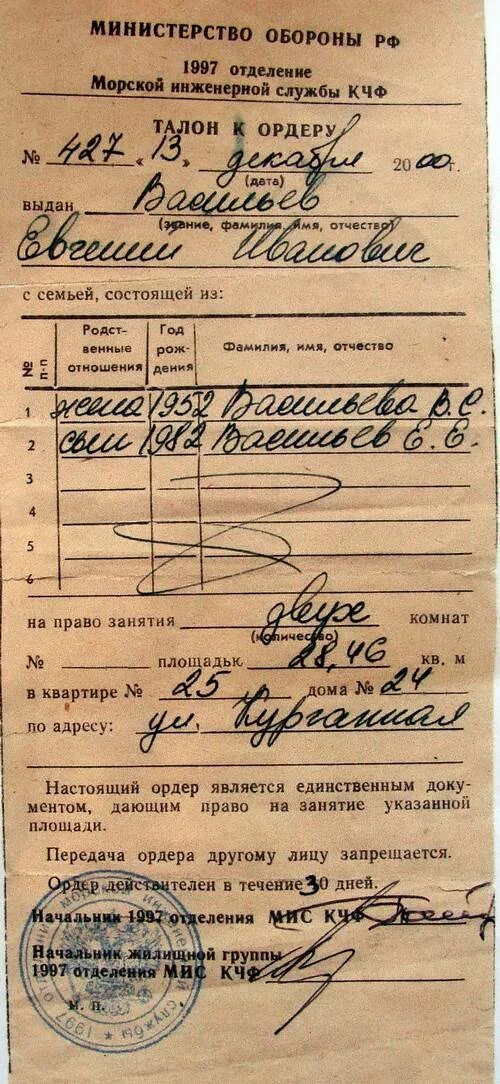 МИНИСТЕРСТВО ОБОРОНЫ РФ
1997 отделение
Морской инженерной службы КЧФ
ТАЛОН К ОРДЕРУ
№ 427 „ 13 „ декабря 2000 г.
(дата)
выдан Васильев
(звание, фамилия, имя, отчество)
Евгений Иванович
с семьей, состоящей из:
№№ п-п Родственные отношения Год рождения Фамилия, имя, отчество
1 жена 1952 Васильева В. С.
2 сын 1982 Васильев Е. Е.
3
4
5
6
на право занятия двух комнат
(количество)
№ площадью 28,46 кв. м
в квартире № 25 дома № 24
по адресу: ул. Курганная
Настоящий ордер является единственным доку-
ментом, дающим право на занятие указанной
площади.
Передача ордера другому лицу запрещается.
Ордер действителен в течение 30 дней.
Начальник 1997 отделения МИС КЧФ
Начальник жилищной группы
1997 отделения МИС КЧФ
м. п.